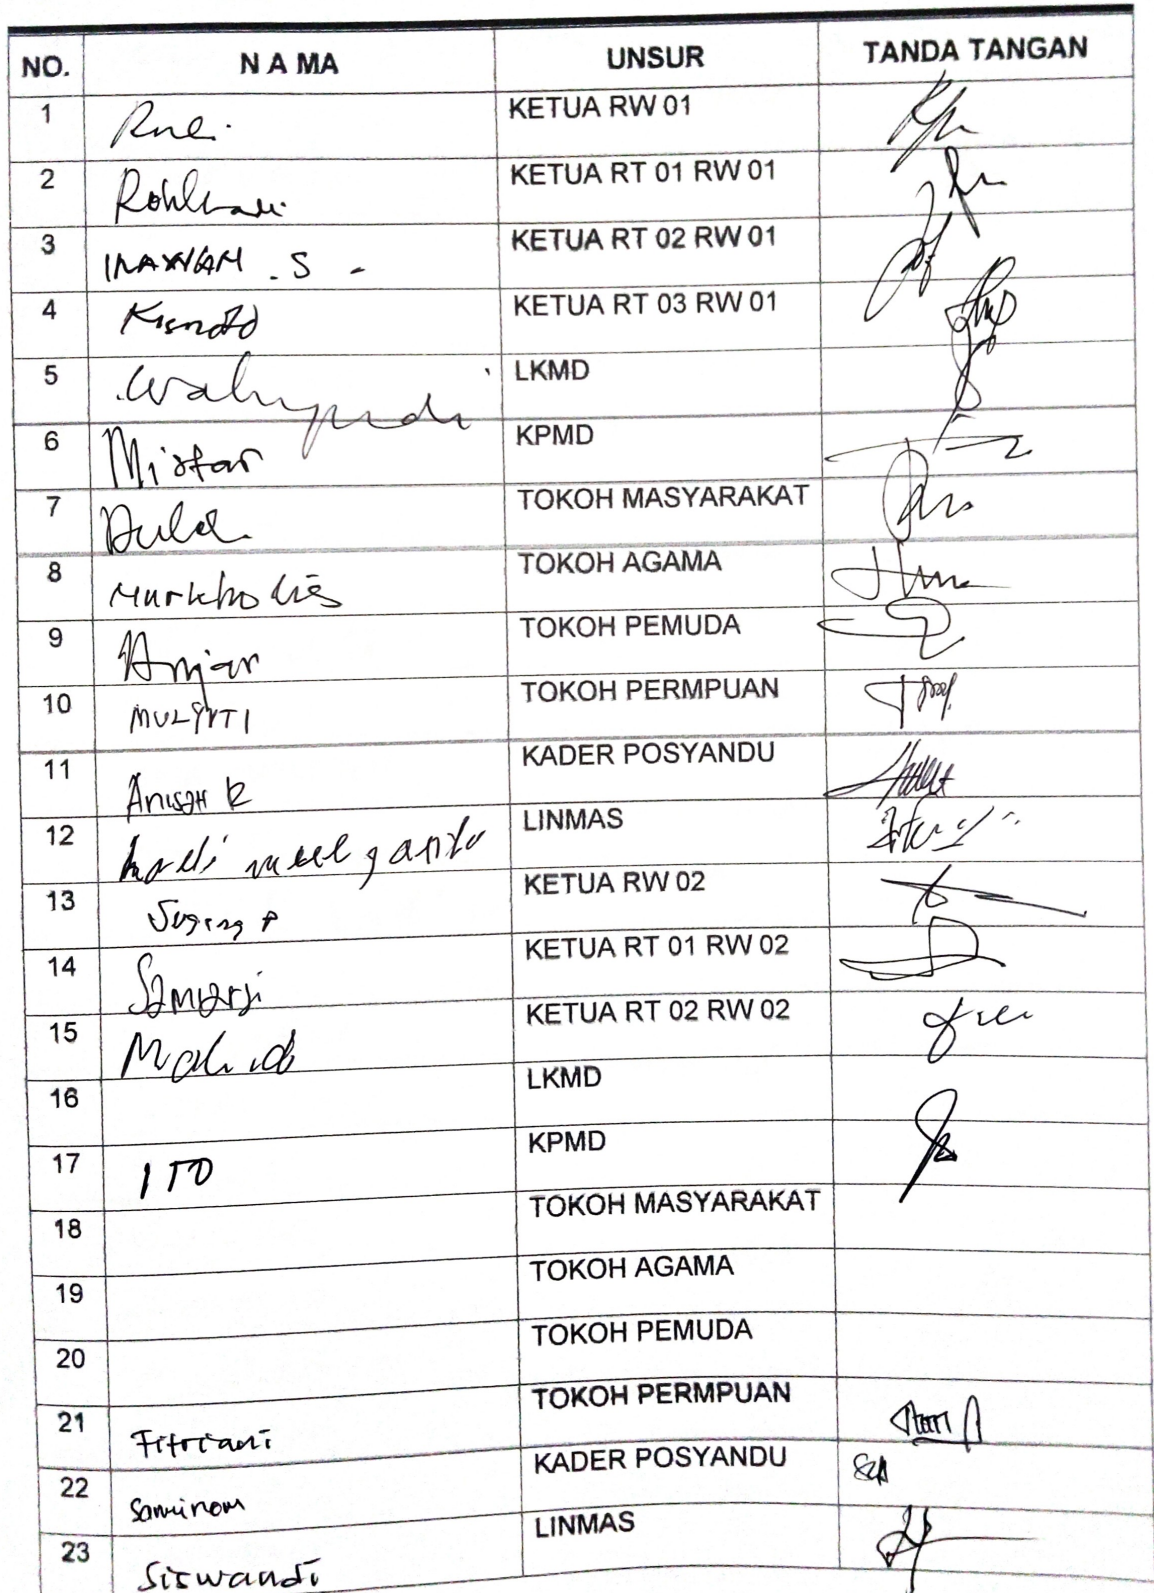 NO. N A M A UNSUR TANDA TANGAN
1 KETUA RW 01
2 KETUA RT 01 RW 01
3 IRAWAN . S - KETUA RT 02 RW 01
4 Kisnoto KETUA RT 03 RW 01
5 Wahyudi LKMD
6 Mistar KPMD
7 TOKOH MASYARAKAT
8 Nurkholis TOKOH AGAMA
9 Anjar TOKOH PEMUDA
10 MULYATI TOKOH PERMPUAN
11 Anisah R KADER POSYANDU
12 LINMAS
13 Sugeng P KETUA RW 02
14 Samiarji KETUA RT 01 RW 02
15 KETUA RT 02 RW 02
16 LKMD
17 ITO KPMD
18 TOKOH MASYARAKAT
19 TOKOH AGAMA
20 TOKOH PEMUDA
21 Fitriani TOKOH PERMPUAN
22 Saminem KADER POSYANDU
23 Siswandi LINMAS